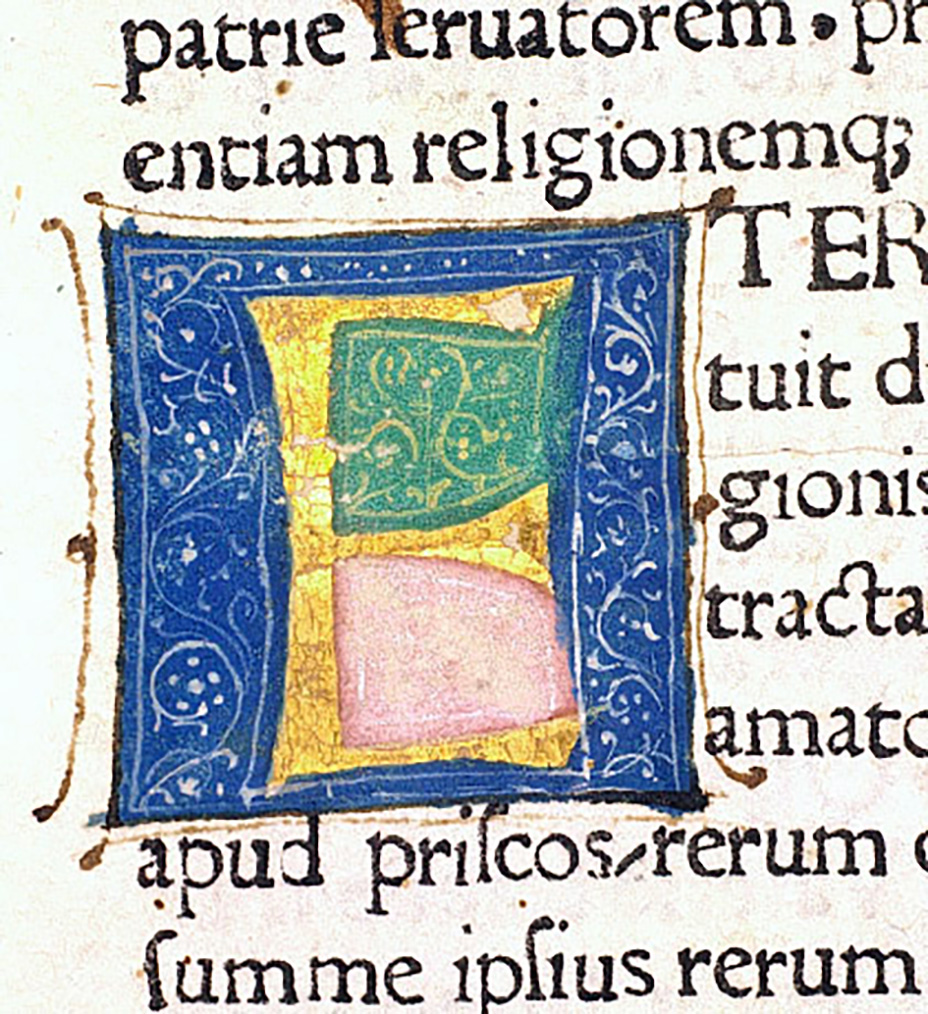 patrie ſeruatorem . pr
entiam religionemqꝫ
ETER
tuit d
gionis
tracta
amato
apud priſcos / rerum
ſumme ipſius rerum